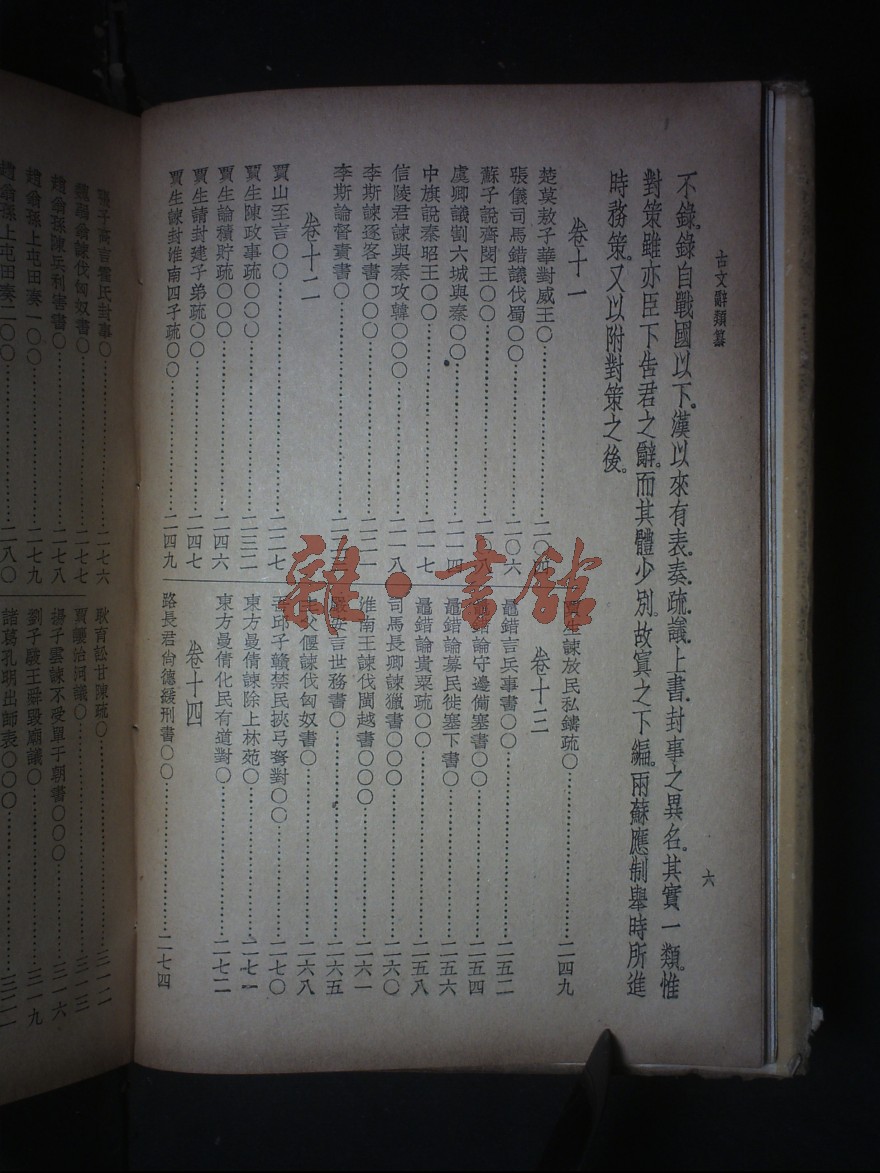 古文辭類纂
六
不錄。錄自戰國以下。漢以來有表.奏.疏.議.上書.封事之異名。其實一類。惟
對策雖亦臣下告君之辭。而其體少別。故寘之下編。兩蘇應制舉時所進
時務策。又以附對策之後。
卷十一
楚莫敖子華對威王○……二〇四
張儀司馬錯議伐蜀○○……二〇六
蘇子說齊閔王○○……二〇八
虞卿議割六城與秦○○……二一四
中旗說秦昭王○○……二一七
信陵君諫與秦攻韓○○○……二一八
李斯諫逐客書○○○……二二一
李斯論督責書○……二二三
卷十二
賈山至言○○……二二七
賈生陳政事疏○○○……二三二
賈生論積貯疏○○○……二四六
賈生請封建子弟疏○○……二四七
賈生諫封淮南四子疏○○……二四九
賈生諫放民私鑄疏○……二四九
卷十三
鼂錯言兵事書○○……二五二
鼂錯論守邊備塞書○○……二五四
鼂錯論募民徙塞下書○……二五六
鼂錯論貴粟疏○○……二五八
司馬長卿諫獵書○○○……二六〇
淮南王諫伐閩越書○○○……二六一
嚴安言世務書○……二六五
主父偃諫伐匈奴書○……二六八
吾邱子贛禁民挾弓弩對○○……二七〇
東方曼倩諫除上林苑○……二七一
東方曼倩化民有道對○……二七二
卷十四
路長君尙德緩刑書○○……二七四
張子高言霍氏封事○……二七六
魏弱翁諫伐匈奴書○……二七七
趙翁孫陳兵利害書○……二七八
趙翁孫上屯田奏一○○……二七九
趙翁孫上屯田奏二○○……二八〇
耿育訟甘陳疏○……三一二
賈讓治河議○……三一三
揚子雲諫不受單于朝書○○○……三一六
劉子駿王舜毀廟議○……三一九
諸葛孔明出師表○○○……三二二
雜·書館